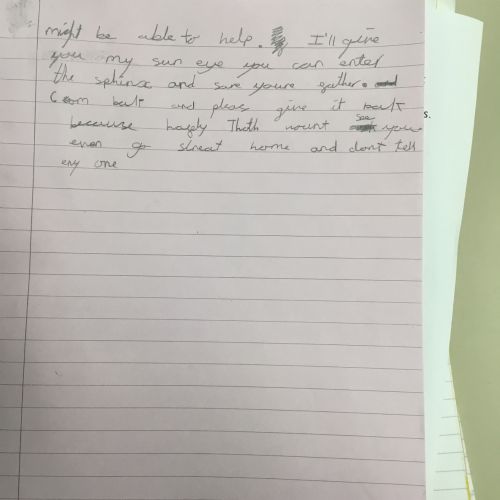 might be able to help. I'll give
you my sun eye you can enter
the sphinx and save youre gather.
Coom bak and pleas give it bak
because hapfly Thoth wount see you
even go streat home and dont tell
eny one
s.